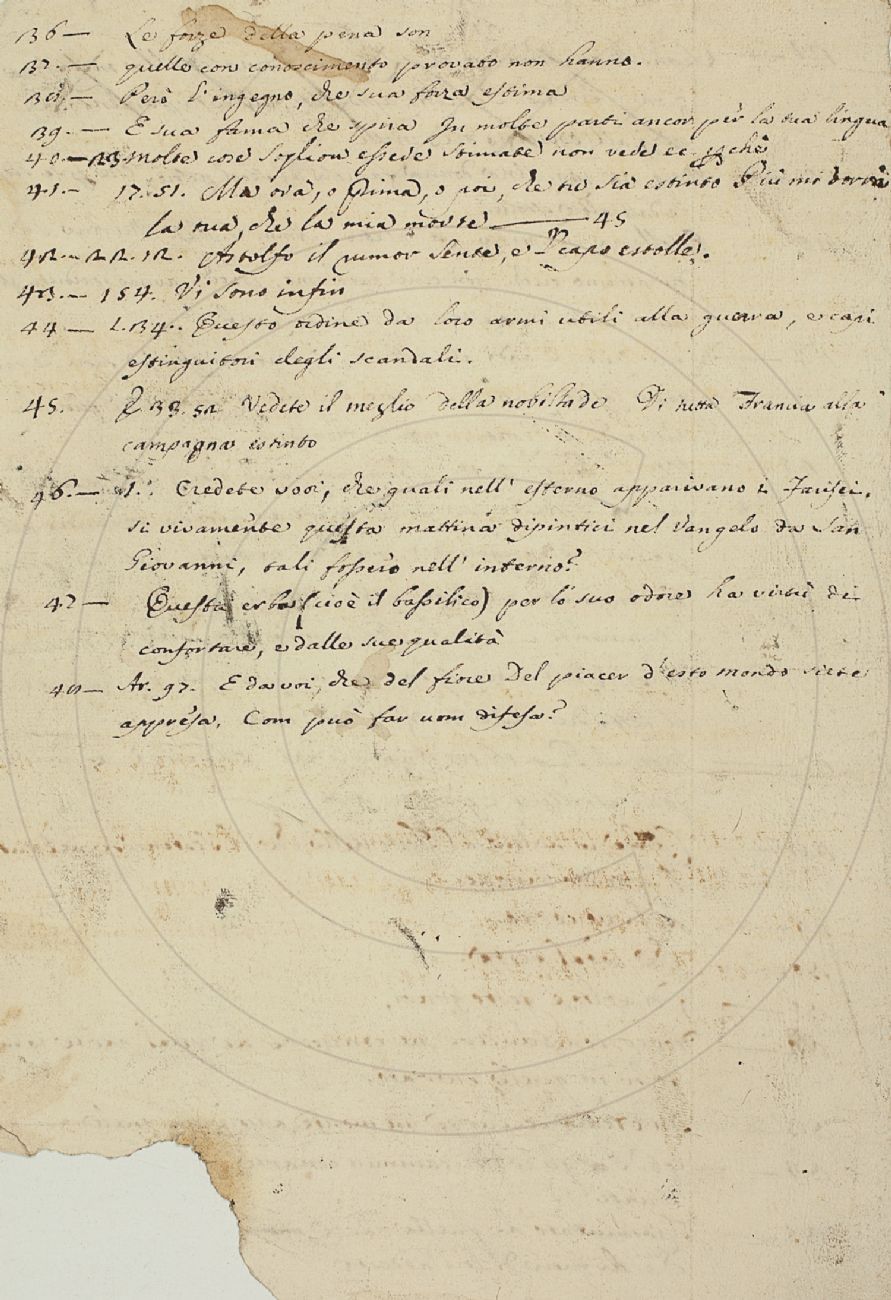 136 — Le forze della pena son
37. — quelle con conoscimento provato non hanno.
38. — Però l'ingegno, che sua forza estima
39. — E sua fama che spira In molte parti ancor per la tua lingua
40 — 23 molte cose soglion essere stimate non vere ec
41 — 17. 51. Ma ora, o prima, o poi, che tu sia estinto Più mi dorrà
la tua, che la mia morte — 45
42. — 22. 12. Astolfo il rumor sente, e 'l capo estolle.
43. — 154. Vi sono infin
44 — 1.34. Questo ordine da loro armi utili alla guerra, e capi
estinguitori degli scandali.
45. 38. 52 Vedete il meglio della nobiltade Di tutta Francia alla
campagna estinto
46. — 1. Credete voi, che quali nell' esterno apparivano i Farisei,
si vivamente questa mattina dipintici nel Vangelo da San
Giovanni, tali fossero nell' interno?
47 — Questa erba (cioè il bassilico) per lo suo odore ha virtù di
confortare, e dalle sue qualità
48 — Ar. 97. E da voi, che del fiore Del piacer d'esto mondo siete
appresa, Com può far uom difesa?